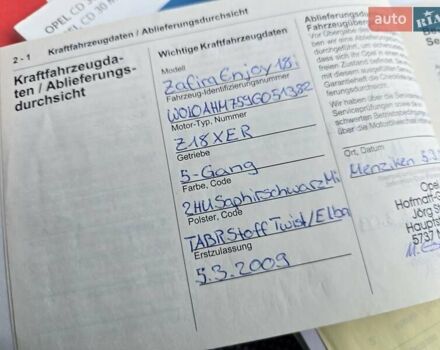 OPEL CD 30
OPEL CD 30 M
auto RIA
2 - 1 Kraftfahrzeugdaten / Ablieferungsdurchsicht
Kraftfahrzeugda-
ten / Ablieferungs-
durchsicht
Wichtige Kraftfahrzeugdaten
Modell
Zafira Enjoy 1.8i
Fahrzeug-Identifizierungsnummer
W0L0AHM759G051382
Motor-Typ, Nummer
Z18XER
Getriebe
5-Gang
Farbe, Code
2HU Saphirschwarz Mi
Polster, Code
TABR Stoff Twist/Elba
Erstzulassung
5.3.2009
Ablieferungs
Fahrzeugüber
Vor Übergabe des
ben wir eine Ablieferungs
durchgeführt, um sicher
dass sich Ihr Opel in
freien Zustand befindet.
mit diesem ausgefüllten
Garantieheft die Checkliste
ferungsdurchsicht.
Wir haben Sie über die
Serviceprüfungen sowie de
schwerten Betriebsbedingungen
über die Motorölwechsel
Ort, Datum
Menziken 5.3
Opel
Hofmatt-
Jörg S
Haupts
5737 M